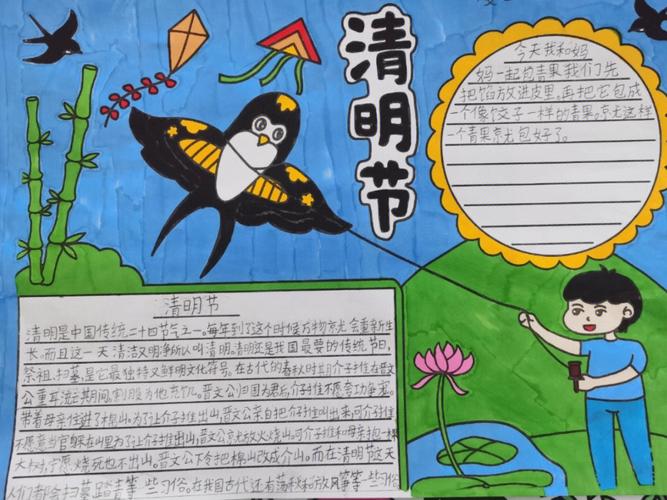 清明节
今天我和妈
妈一起包青果我们先
把馅放进皮里,再把它包成
一个像饺子一样的青果。京尤这样
一个青果京尤包好了。
清明节
清明是中国传统二十四节气之一。每年到了这个时候万物京尤会重新生
长。而且这一天清洁又明净所以叫清明。清明还是我国最要的传统节日,
祭祖、扫墓是它最独特又鲜明文化符号。在古代的春秋时期介子推在晋文
公重耳流亡期间,割股为他充饥。晋文公归国为君后,介子推不愿夸功争宠。
带着母亲住进了棉山。为了让介子推出山,晋文公亲自把介子推叫出来,可介子推
不愿意当官躲在山里为了让介子推出山,晋文公京尤放火烧山。可介子推和母亲抱一棵
大树,宁愿烧死也不出山。晋文公下令把棉山改成介山。而在清明节这天
人们都会扫墓踏青等一些习俗。在我国古代还有荡秋和放风筝等一些习俗